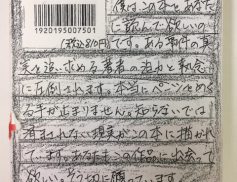 僕はこの本をあなた
に読んで欲しいの
1920195007501
(税込810円)です。ある事件の真
実を追い求める著者の迫力と熱念
に圧倒されます。本当にページをめく
る手が止まりません。知らないでは
済まされない現実がこの本に描かれ
ています。あなたもこの作品に出会って
欲しい。そう切に願っています